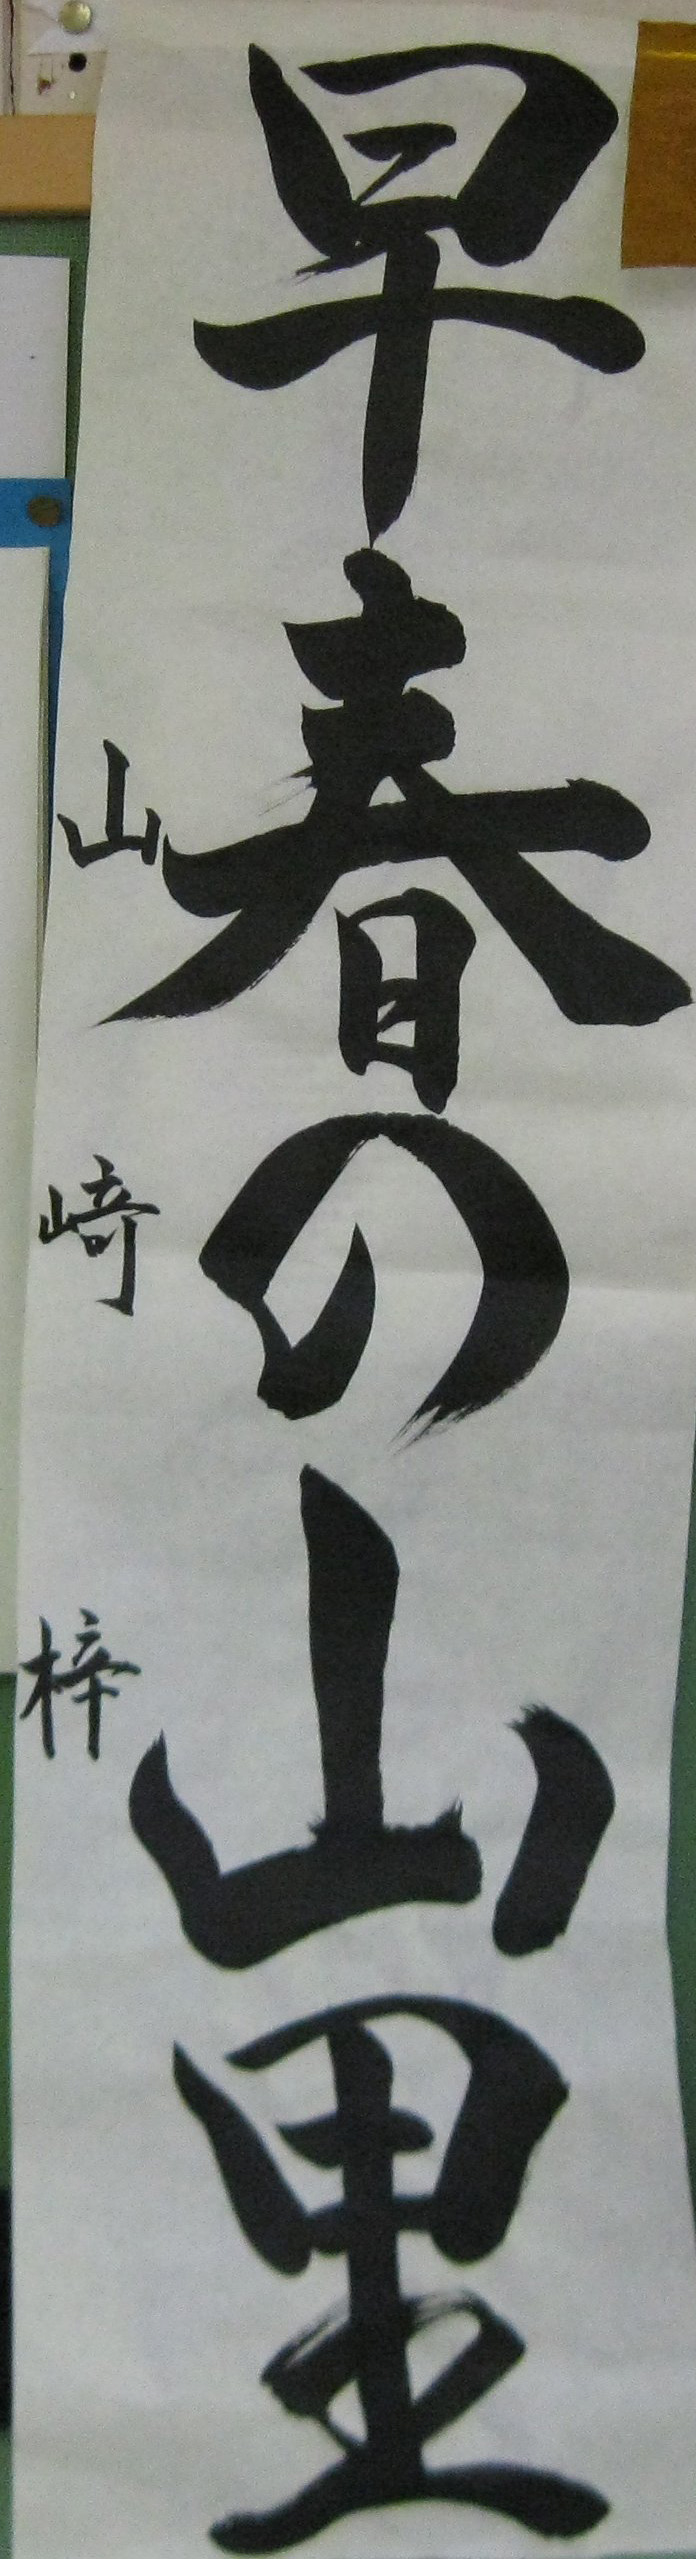 早春の山里
山崎梓